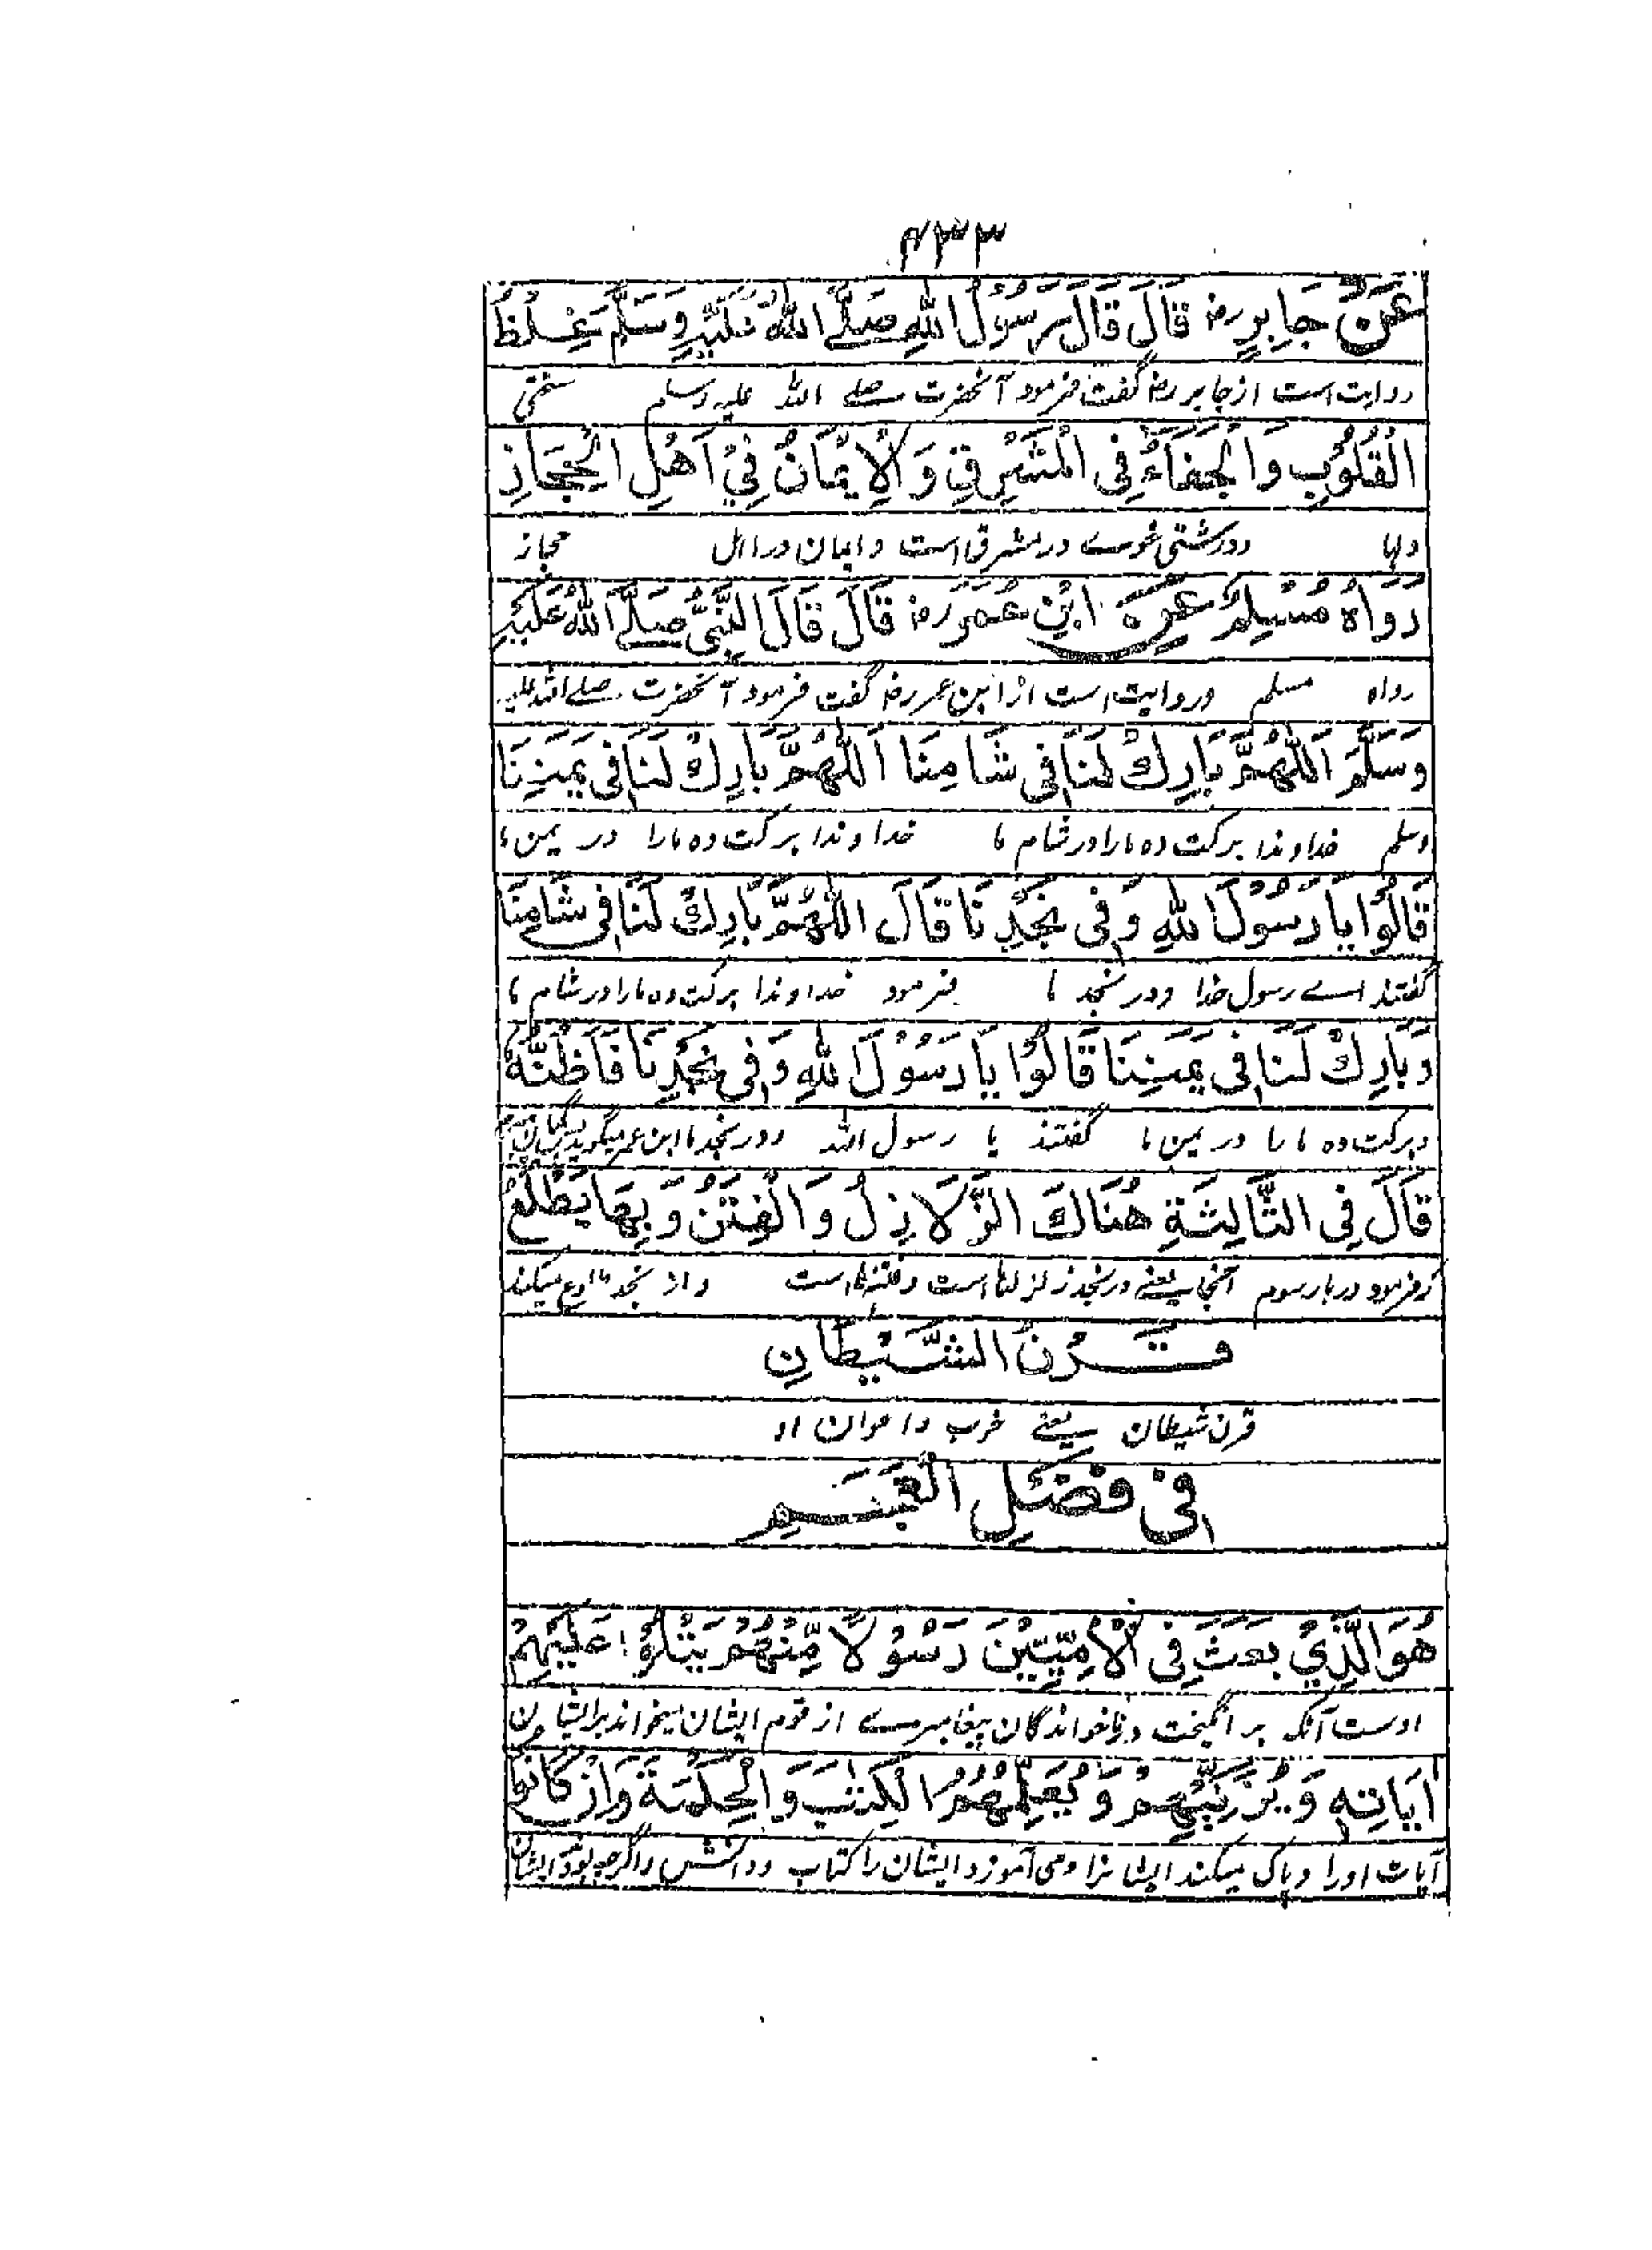 ۴۳۳
عَنْ جَابِرٍ رض قَالَ قَالَ رَسُوْلُ اللهِ صَلَّے اللهُ عَلَيْهِ وَسَلَّمَ غِلْظُ
روایت است از جابر رض گفت فرمود آنحضرت صلے اللہ علیہ وسلم سختی
الْقُلُوْبِ وَالْجَفَاءُ فِى الْمَشْرِقِ وَالْاِيْمَانُ فِيْ اَهْلِ الْحِجَازِ
دلها ودرشتی خوے در مشرق است و ایمان در اهل حجاز
رَوَاهُ مُسْلِمٌ عَنْ ابْنِ عُمَرَ رض قَالَ قَالَ النَّبِىُّ صَلَّے اللهُ عَلَيْهِ
رواه مسلم وروایت است از ابن عمر رض گفت فرمود آنحضرت صلے اللہ علیہ
وَسَلَّمَ اَللّٰهُمَّ بَارِكْ لَنَا فِى شَامِنَا اَللّٰهُمَّ بَارِكْ لَنَا فِى يَمَنِنَا
وسلم خداوندا برکت ده مارا در شام ما خداوندا برکت ده مارا در یمن ما
قَالُوْا يَا رَسُوْلَ اللهِ وَفِى نَجْدِنَا قَالَ اللّٰهُمَّ بَارِكْ لَنَا فِى شَامِنَا
گفتند اے رسول خدا ودر نجد ما فرمود خداوندا برکت ده مارا در شام ما
وَبَارِكْ لَنَا فِى يَمَنِنَا قَالُوْا يَا رَسُوْلَ اللهِ وَفِى نَجْدِنَا فَاَظُنُّهُ
وبرکت ده ما را در یمن ما گفتند یا رسول اللہ ودر نجد ما ابن عمر میگوید
قَالَ فِى الثَّالِثَةِ هُنَاكَ الزَّلَازِلُ وَالْفِتَنُ وَبِهَا يَطْلُعُ
که فرمود در بار سوم آنجا یعنے در نجد زلزلها است وفتنها است واز نجد طلوع میکند
قَرْنُ الشَّيْطَانِ
قرن شیطان یعنے حزب واعوان او
فى فضل العجم
هُوَ الَّذِيْ بَعَثَ فِى الْاُمِّيِّيْنَ رَسُوْلًا مِّنْهُمْ يَتْلُوْا عَلَيْهِمْ
اوست آنکہ بر انگیخت در ناخواندگان پیغامبرے از قوم ایشان میخواند بر ایشان
اٰيَاتِهٖ وَيُزَكِّيْهِمْ وَيُعَلِّمُهُمُ الْكِتٰبَ وَالْحِكْمَةَ وَاِنْ كَانُوْا
آیات اورا وپاک میکند ایشانرا ومی آموزد ایشان را کتاب ودانش واگرچه بودند ایشان